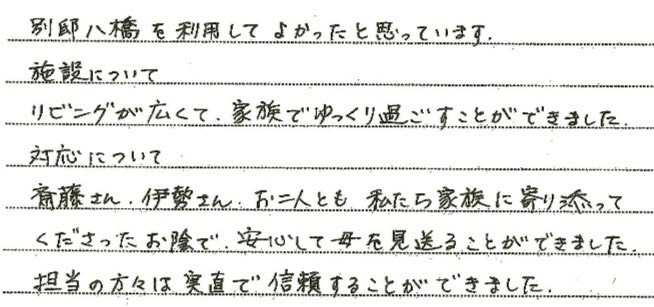 別邸八橋を利用してよかったと思っています.
施設について
リビングが広くて、家族でゆっくり過ごすことができました.
対応について
斎藤さん、伊勢さん、お二人とも 私たち家族に寄り添って
くださったお陰で、安心して母を見送ることができました.
担当の方々は実直で信頼することができました.